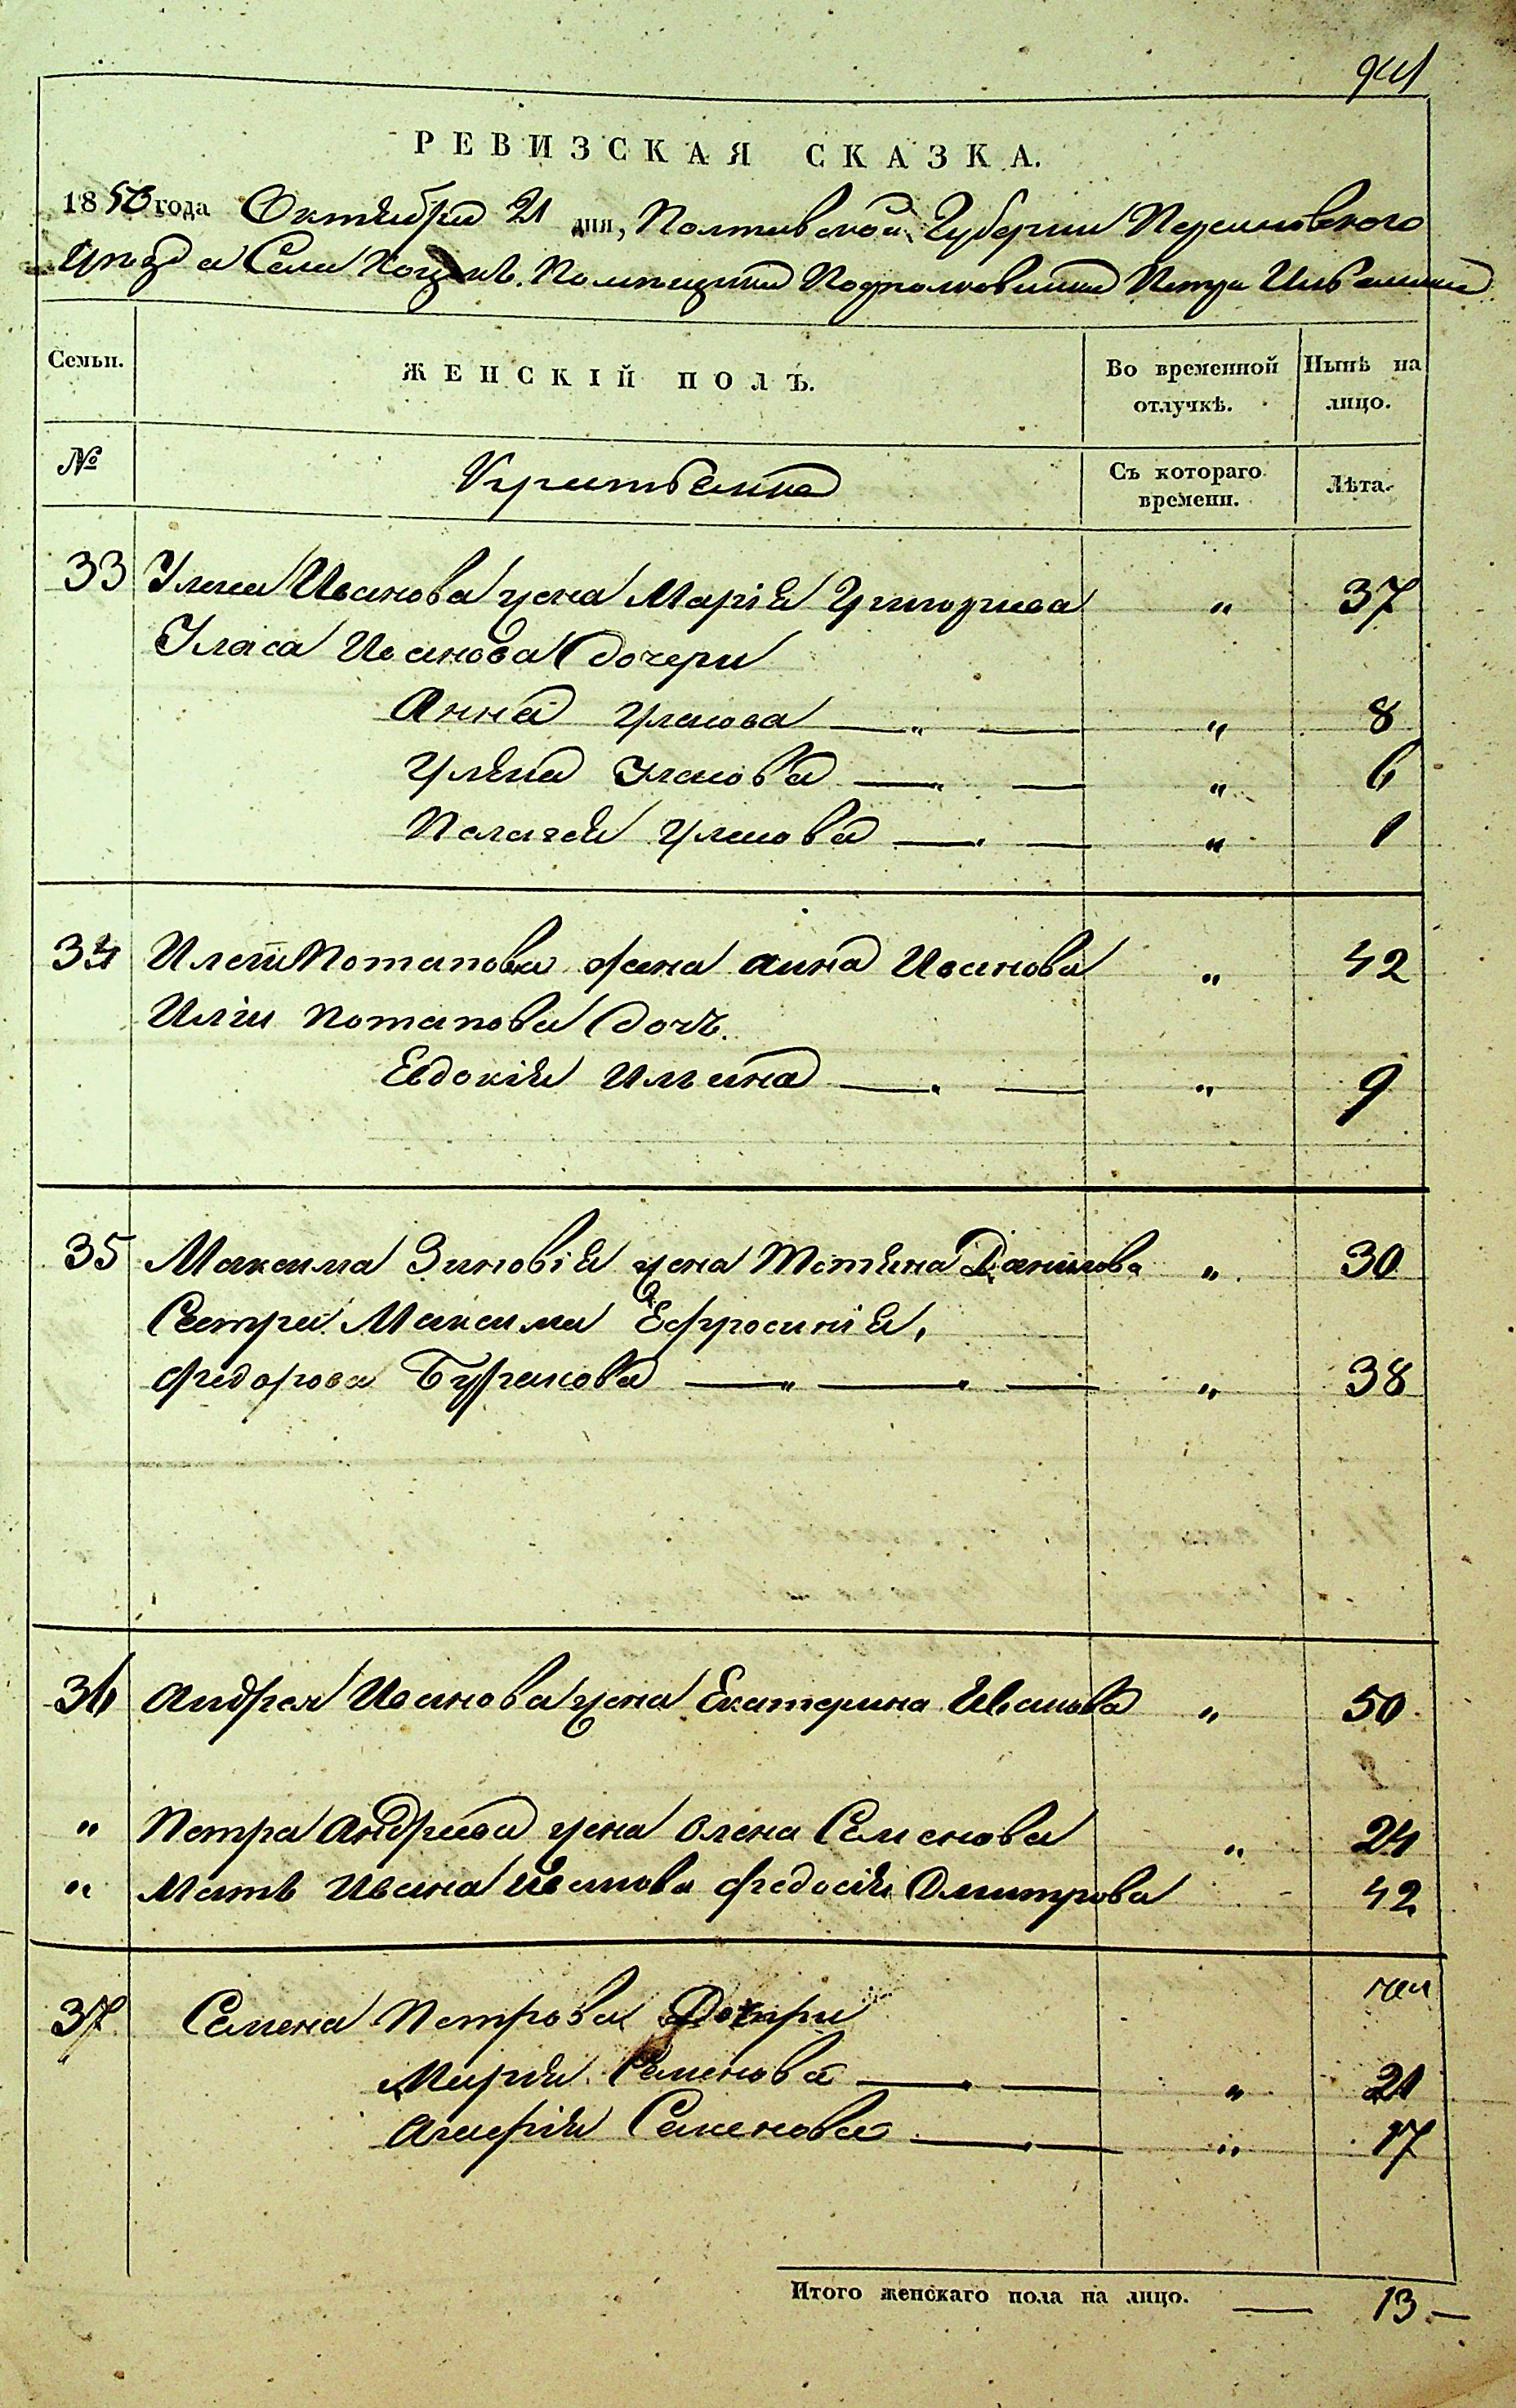 941
РЕВИЗСКАЯ СКАЗКА.
1850 года Октября 21 дня, Полтавской Губернии
Уезда Села Помещика Подполковника Петра
Семьи. ЖЕНСКІЙ ПОЛЪ. Во временной отлучкѣ. Нынѣ на лицо.
№ Съ котораго времени. Лѣта.
33 Уласа Иванова жена Марія Григориева " 37
Уласа Иванова дочери
Анна Уласова " 8
Уляна Уласова " 6
Палагея Уласова " 1
34 Потапова жена анна Иванова " 42
Иліи Потапова дочь.
Евдокія Ильина " 9
35 Максима Зиновія жена Татяна Данилова " 30
Сестра Максима Ефросинія,
Федорова " 38
36 Андрея Иванова жена Екатерина Иванова " 50
" Петра Андреева жена Олена Семенова " 24
" Мать Ивана Иванова Федосія Дмитрова 42
37 Семена Петрова Дочери
Марія Семенова " 21
Агафія Семенова " 17
Итого женскаго пола на лицо. — 13 —